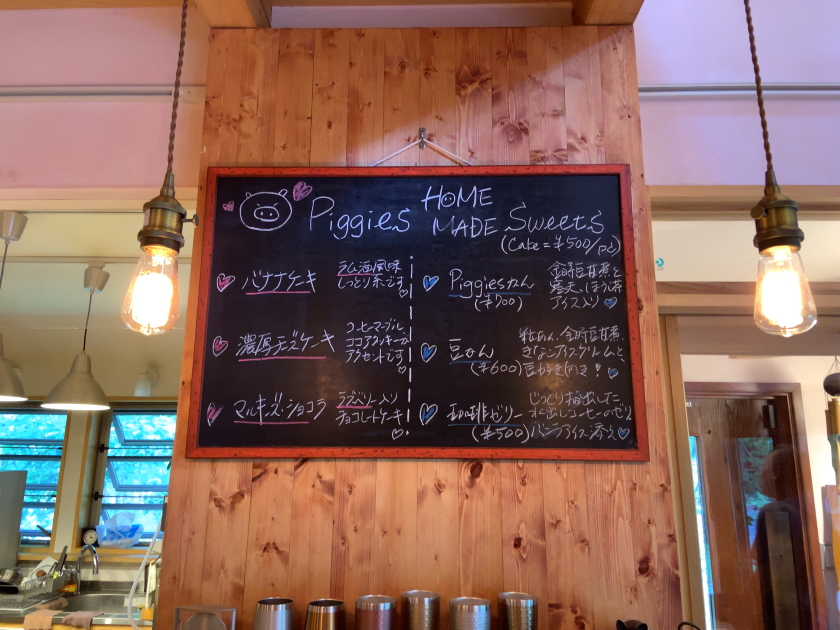 Piggies HOME MADE Sweets
(Cake = ¥500/pc)
バナナケーキ
ラム酒風味
しっとり系です
濃厚チーズケーキ
コーヒーマーブル、
ココアクッキーが
アクセントです
マルキーズ・ショコラ
ラズベリー入り
チョコレートケーキ
Piggiesかん
(¥700)
金時豆甘煮と
寒天、ほうじ茶
アイス入り
豆かん
(¥600)
粒あん、金時豆甘煮、
きなこアイスクリームと、
豆好き向き!
珈琲ゼリー
(¥500)
じっくり抽出した
水出しコーヒーのゼリー
バニラアイス添え